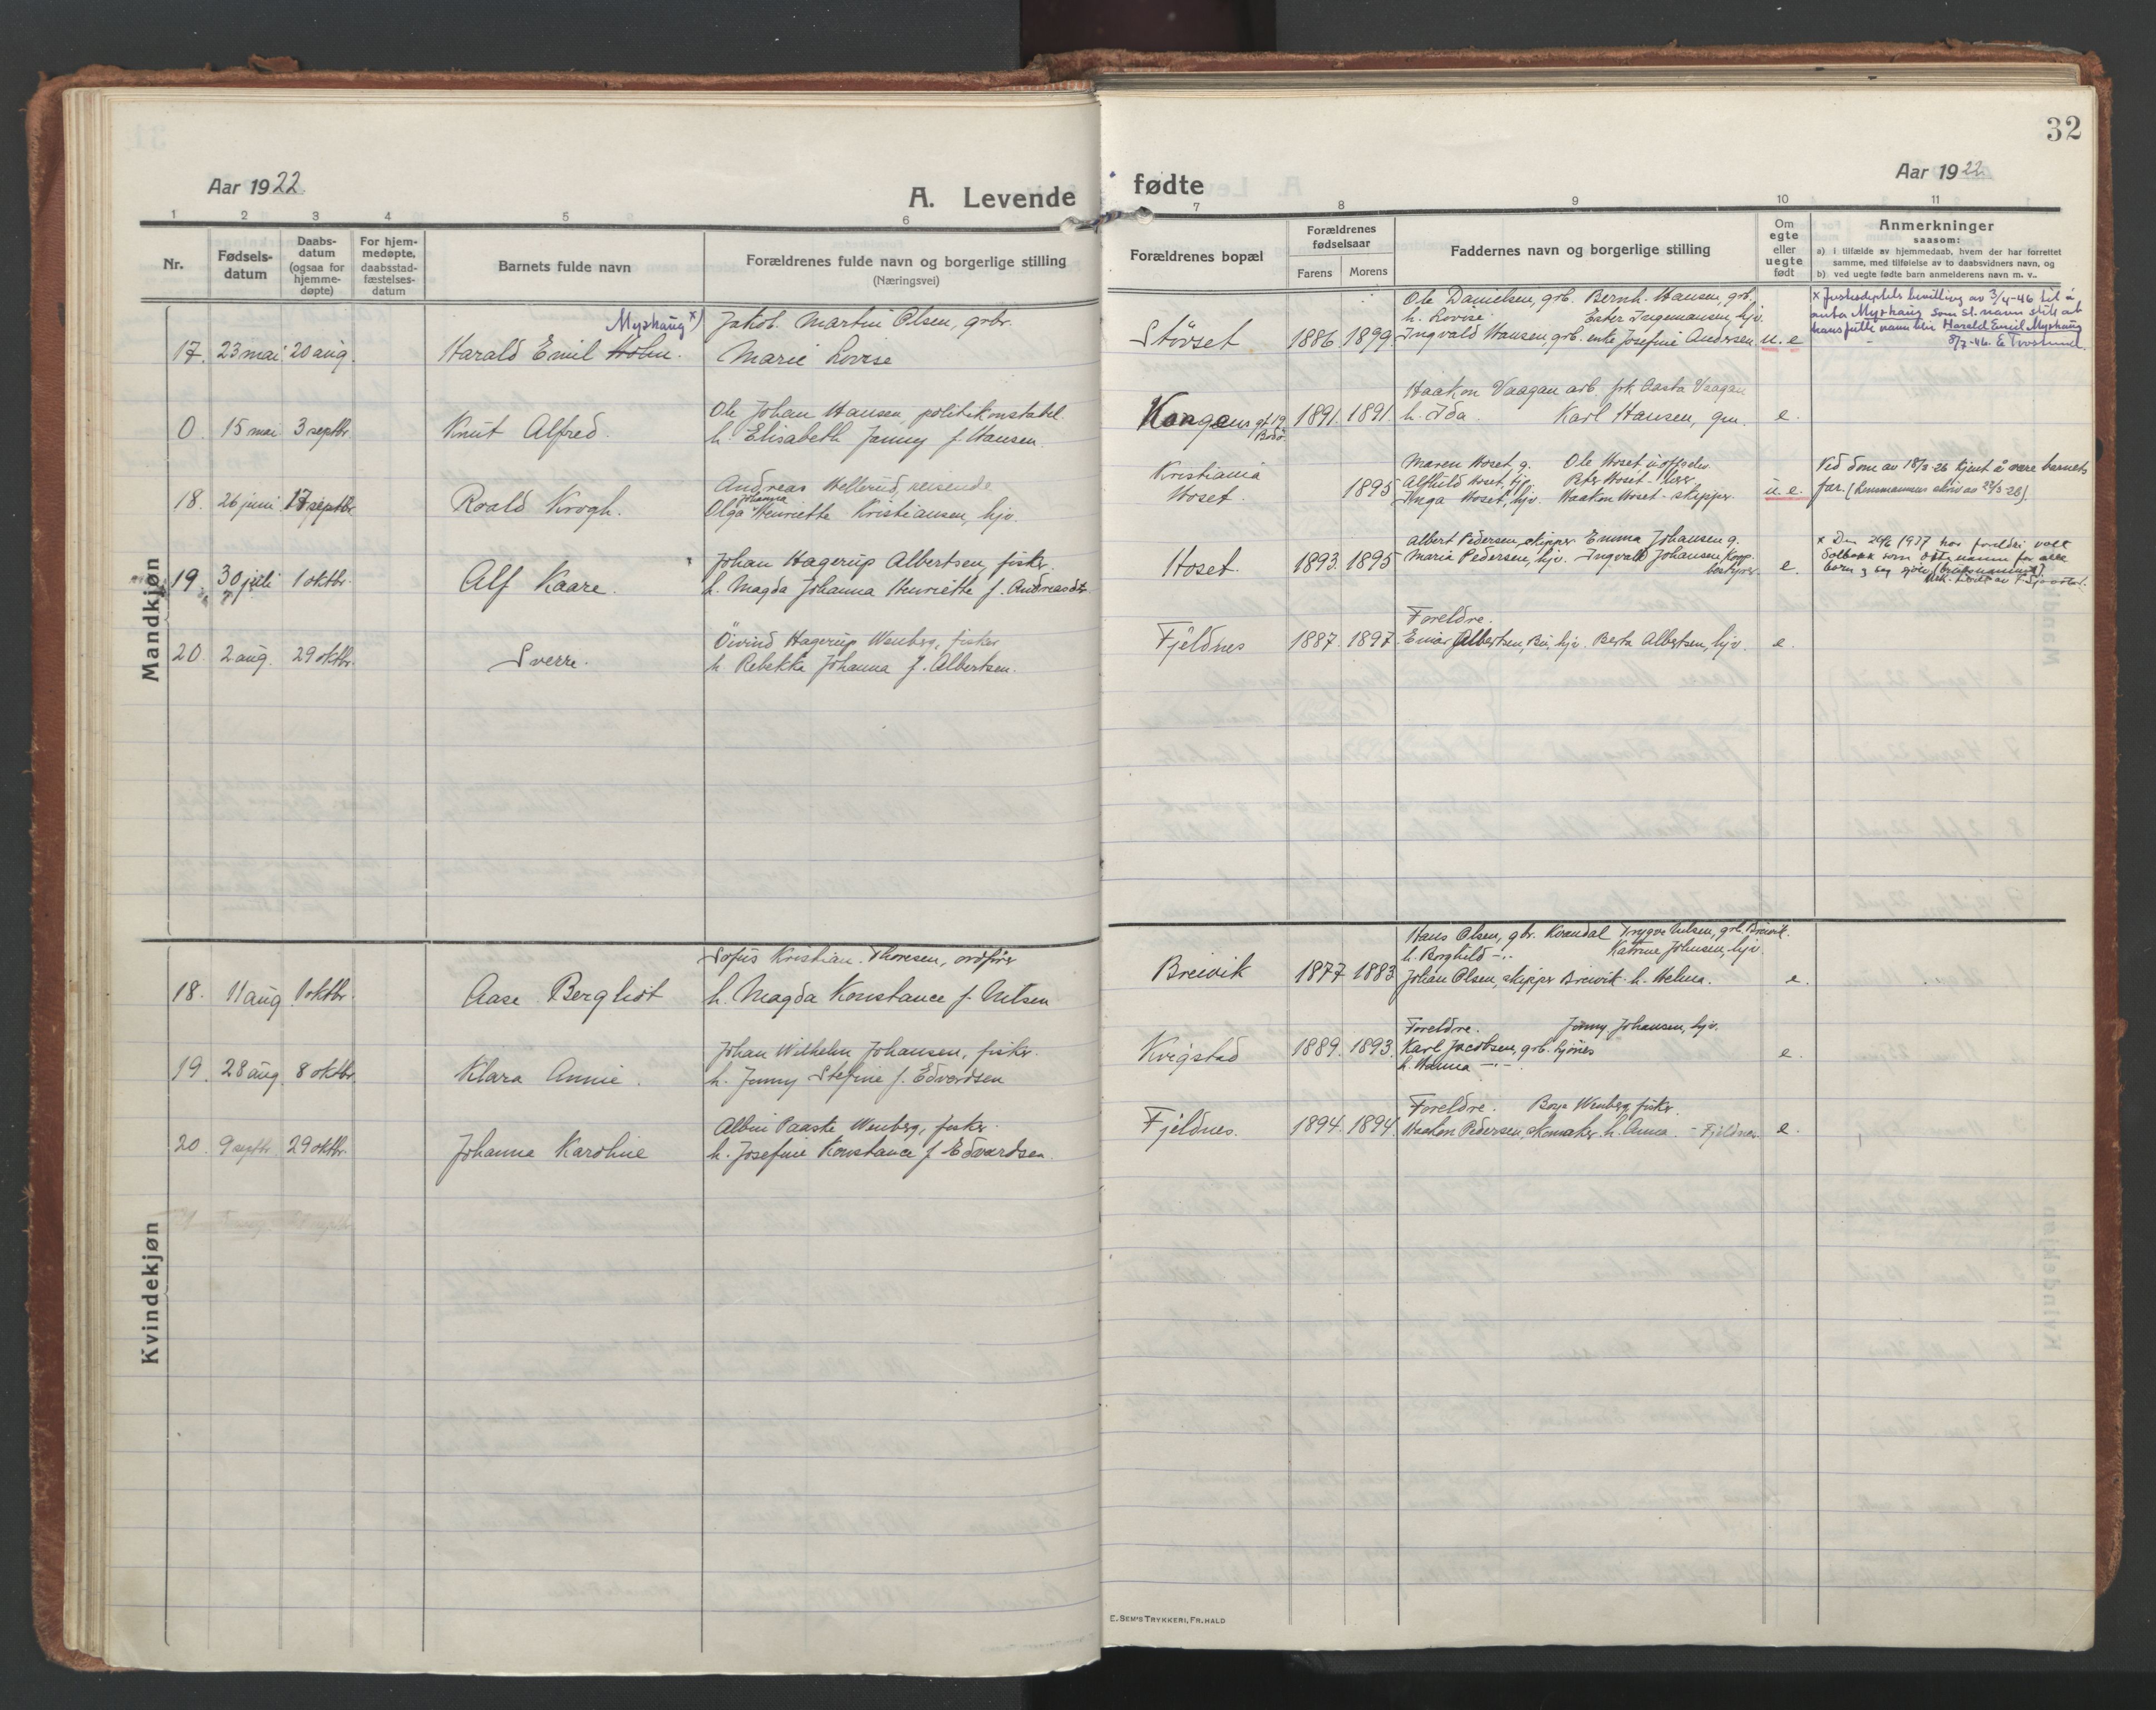 32
Aar 1922
A. Levende fødte
Aar 1922
1 2 3 4 5 6 7 8 9 10 11
Nr.
Fødsels-
datum
Daabs-
datum
(ogsaa for
hjemme-
døpte)
For hjem-
medøpte,
daabsstad-
fæstelses-
datum
Barnets fulde navn
Forældrenes fulde navn og borgerlige stilling
(Næringsvei)
Forældrenes bopæl
Forældrenes
fødselsaar
Farens Morens
Faddernes navn og borgerlige stilling
Om
egte
eller
uegte
født
Anmerkninger
saasom:
a) i tilfælde av hjemmedaab, hvem der har forrettet
samme, med tilføielse av to daabsvidners navn, og
b) ved uegte fødte barn anmelderens navn m. v..
Mandkjøn
Myrhaug x)
17. 23 mai 20 aug. Harald Emil Holm.
Jakob Martin Olsen, grbr.
Marie Lovise
Støvset 1886. 1899.
Ole Danielsen, grb. Bernh. Hansen, grb.
h. Lovise. Ester Ingemansen, hjv.
Ingvald Hansen, grb. enke Josefine Andersen.
u. e.
x Justisdeptets bevilling av 3/4-46 til å
anta Myrhaug som sl. navn slik at
hans fulle navn blir Harald Emil Myrhaug
8/7-46. E
0. 15 mai 3 septbr. Knut Alfred.
Ole Johan Hansen politikonstabel
h. Elisabeth Jenny f. Hansen
Kongens gt 19
Bodø
1891. 1891.
Haakon Vaagan arb. frk Aasta Vaagan
h. Ida. Karl Hansen, gm.
e.
18. 26 juni 17 septbr Roald Krogh.
Andreas Hellerud, reisende
Johanna
Olga Henriette Kristiansen, hjv.
Kristiania
Hoset.
1895
Maren Hoset, g. Ole Hoset
Alfhild Hoset, hjv. Peter Hoset -
Inga Hoset, hjv. Haakon Hoset - skipper.
u. e.
Ved dom av 18/3-26 kjent å være barnets
far. (Lensmannens skriv av 22/3-28)
19. 30 juli 1 oktbr. Alf Kaare.
Johan Hagerup Albertsen, fisker.
h. Magda Johanna Henriette f. Andreasdtr.
Hoset. 1893. 1895
Albert Pedersen, skipper Emma Johansen g.
Maria Pedersen, hjv. Ingvald Johansen, Koop.
bestyrer.
e.
x Den 29/6 1927 har foreldri valt
Solbakk som ættenamn for alle
born og seg sjølv (bruksnamnet)
20. 2 aug. 29 oktbr. Sverre.
Öivind Hagerup Wenberg, fisker
h. Rebekka Johanna f. Albertsen.
Fjeldnes 1887. 1897.
Foreldre.
Einar Albertsen, hjv. Berta Albertsen, hjv.
e.
Kvindekjøn
18. 11 aug. 1 oktbr. Aase Bergliot
Sofus Kristian Thoresen, ordfører
h. Magda Konstance f. Nilsen
Breivik 1877 1883
Hans Olsen, gbr. Kvandal Trygve Nilsen, grb. Breivik.
h. Borghild -"- Katrine Johnsen, hjv.
Johan Olsen, skipper Breivik - h. Helma.
e.
19. 28 aug. 8 oktbr. Klara Annie.
Johan Wilhelm Johansen, fisker.
h. Jenny Stefine f. Edvardsen
Kvigstad 1889. 1893.
Foreldre. Jenny Johansen, hjv.
Karl Jacobsen, grb.
h. Hanna -"-
e.
20. 9 septbr 29 oktbr. Johanna Karoline
Albin Paaske Wenberg, fisker.
h. Josefine Konstance f. Edvardsen.
Fjeldnes. 1894. 1894
Foreldre. Borge Wenberg, fisker.
Haakon Pedersen, skomaker h. Anna. - Fjeldnes.
e.
E. SEM'S TRYKKERI, FR.HALD